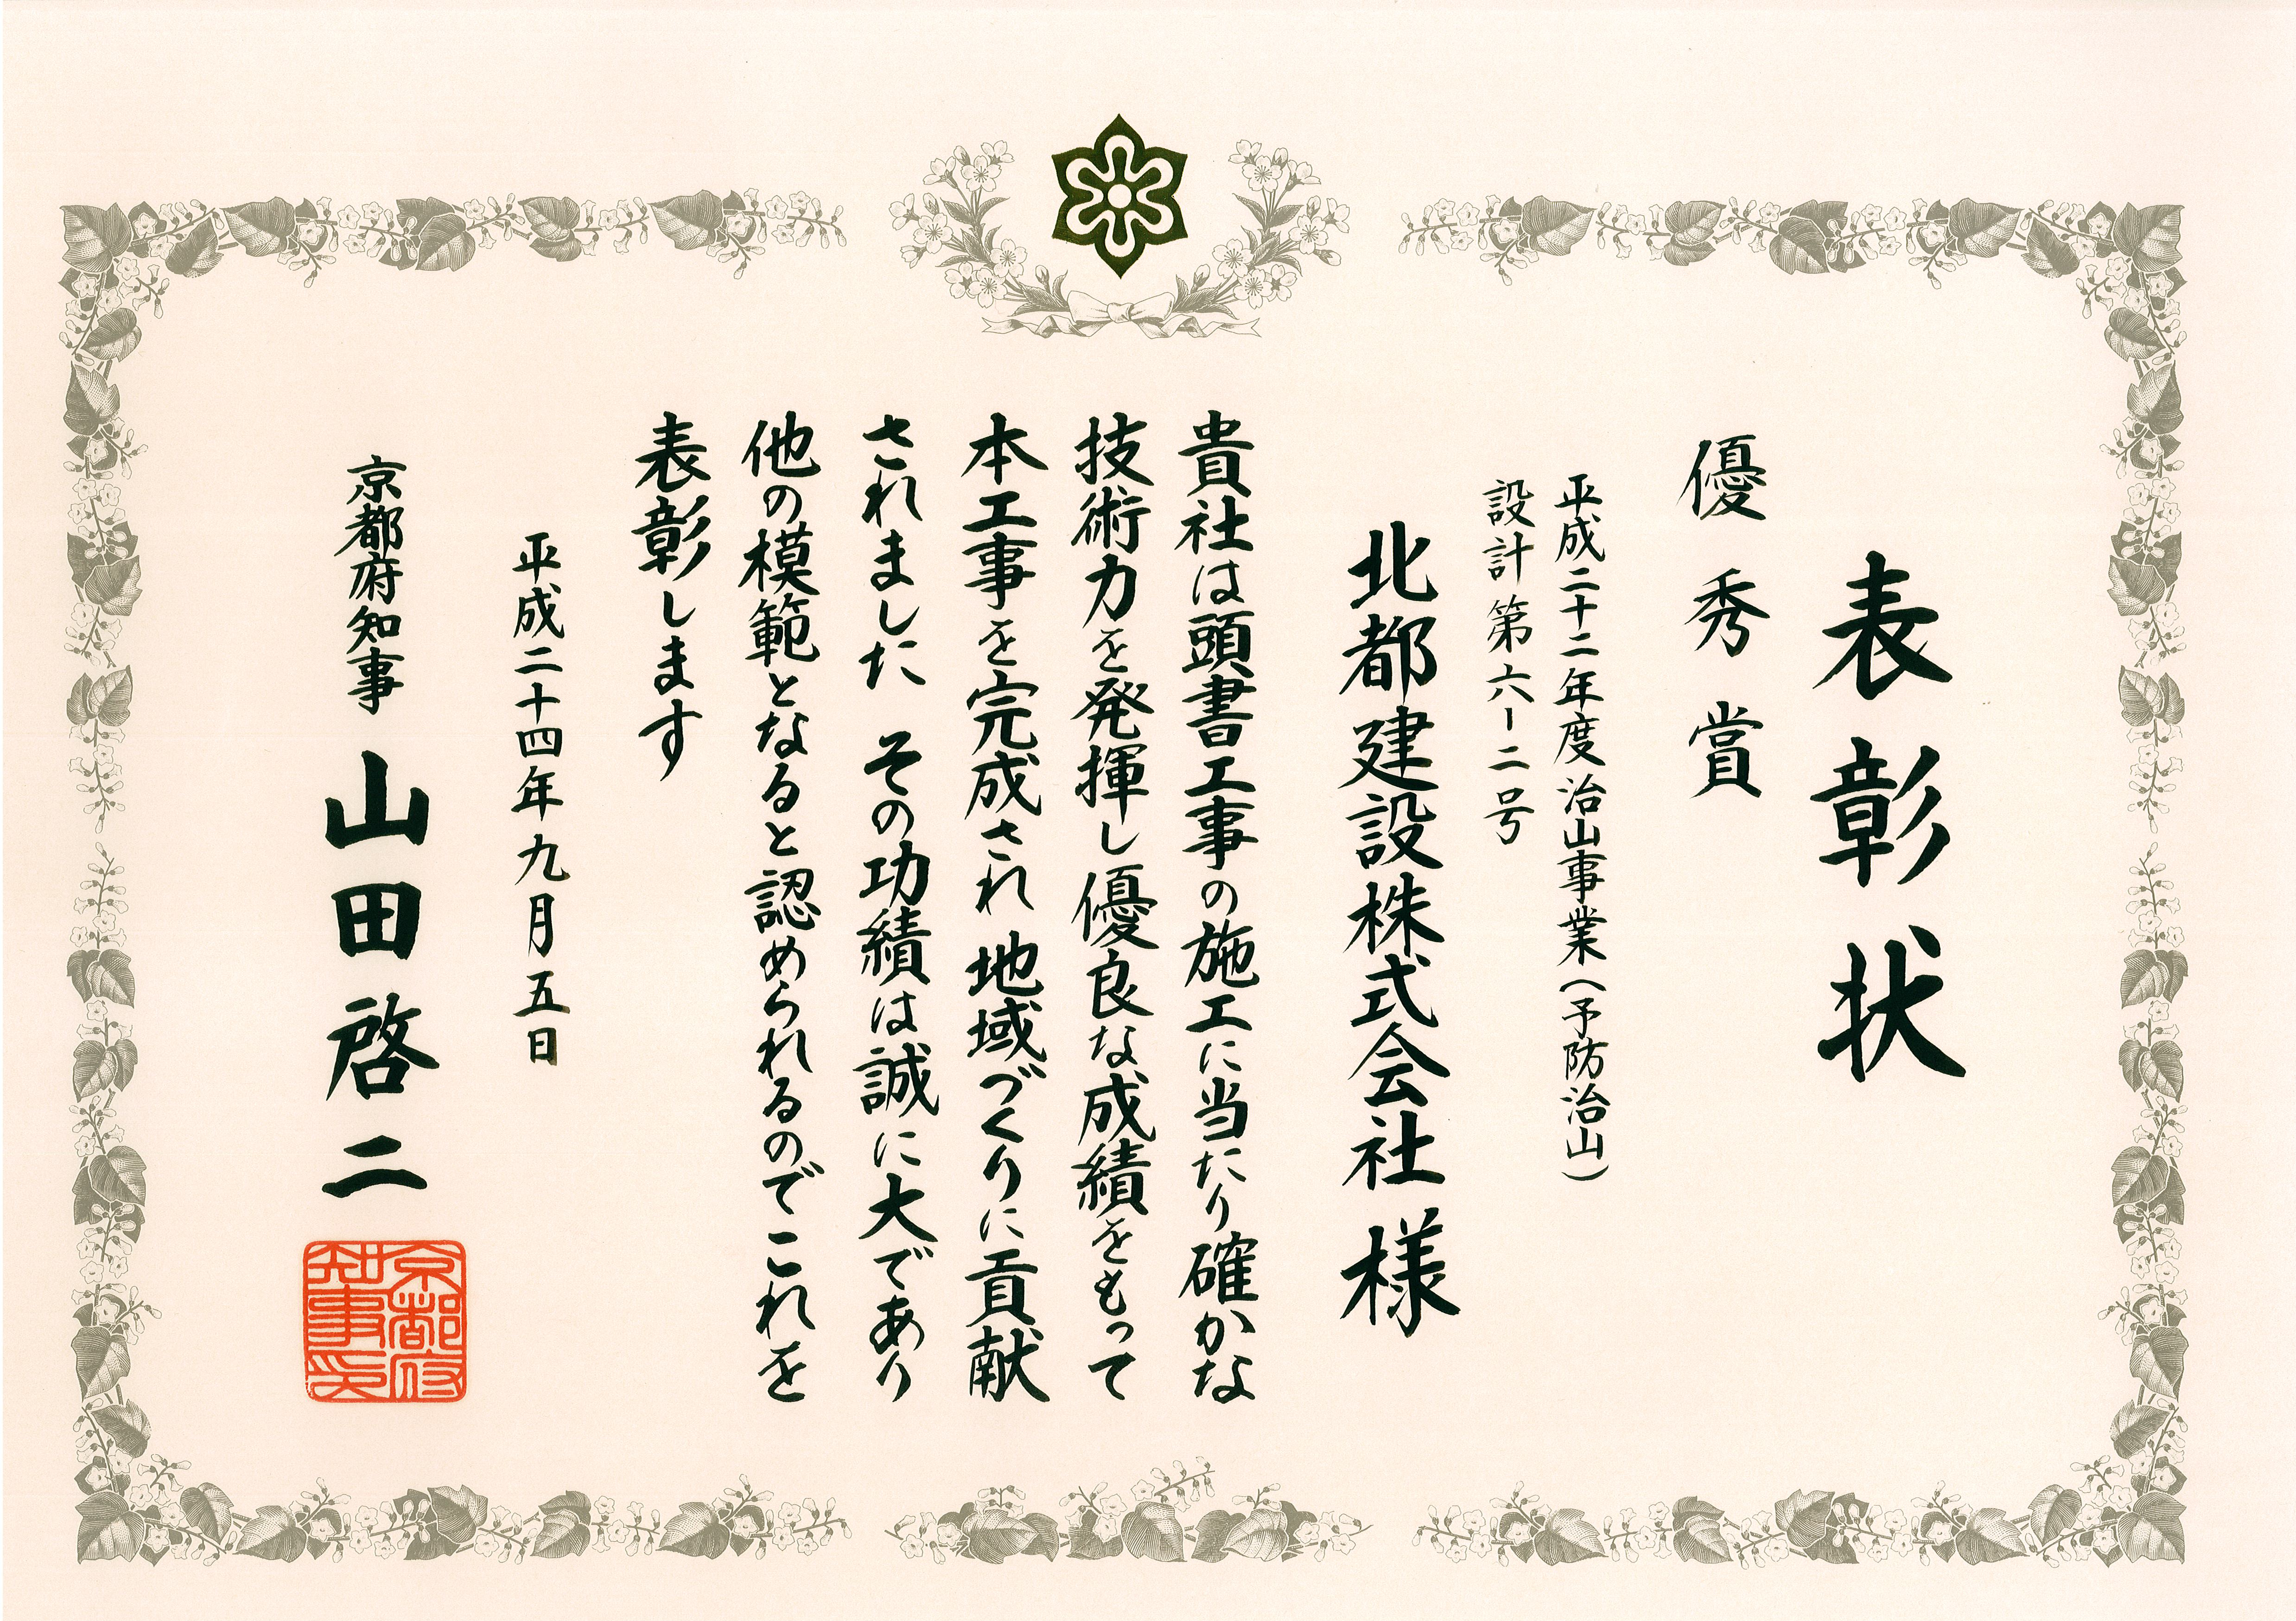 表彰状
優秀賞
平成二十二年度治山事業(予防治山)
設計第六ー二号
北都建設株式会社様
貴社は頭書工事の施工に当たり確かな
技術力を発揮し優良な成績をもって
本工事を完成され 地域づくりに貢献
されました その功績は誠に大であり
他の模範となると認められるのでこれを
表彰します
平成二十四年九月五日
京都府知事 山田啓二
京都府
知事印